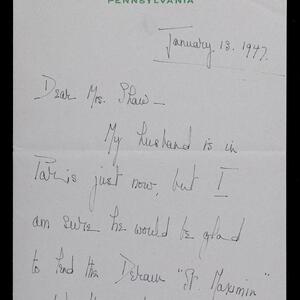 PENNSYLVANIA
January 13. 1947.
Dear Mrs. Shaw –
My husband is in
Paris just now, but I
am sure he would be glad
to lend the Derain "St. Maximin"